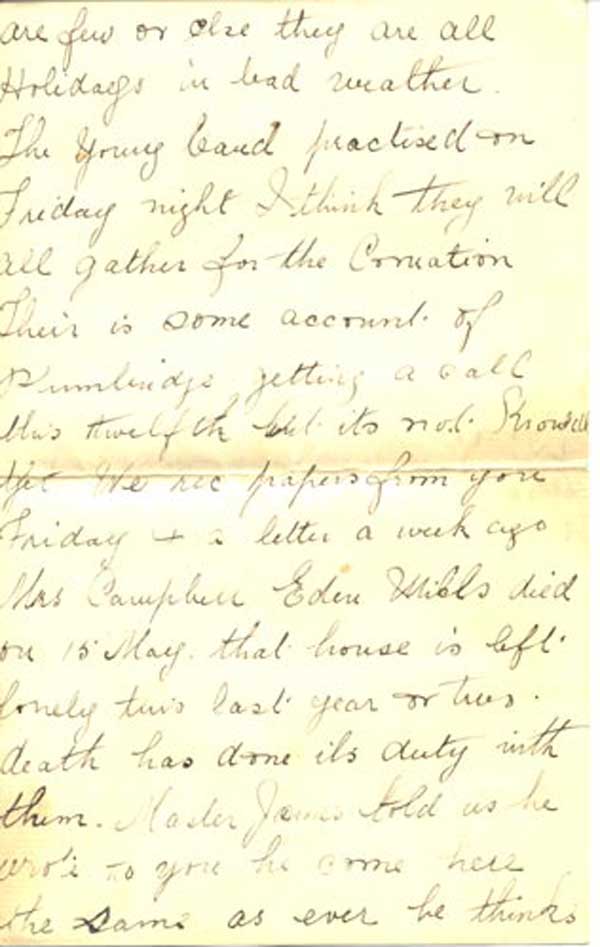 are few or else they are all
Holidays in bad weather.
The Young band practised on
Friday night I think they will
all gather for the Cornation
Their is some account of
getting a call
this twelfth but its not Knowen
yet We rec papers from you
Friday + a letter a week ago
Mrs Campbell Eden Mills died
on 15 May. that house is left
lonely this last year or two.
death has done its duty with
them. Master James told us he
wrote to you he come here
the same as ever he thinks